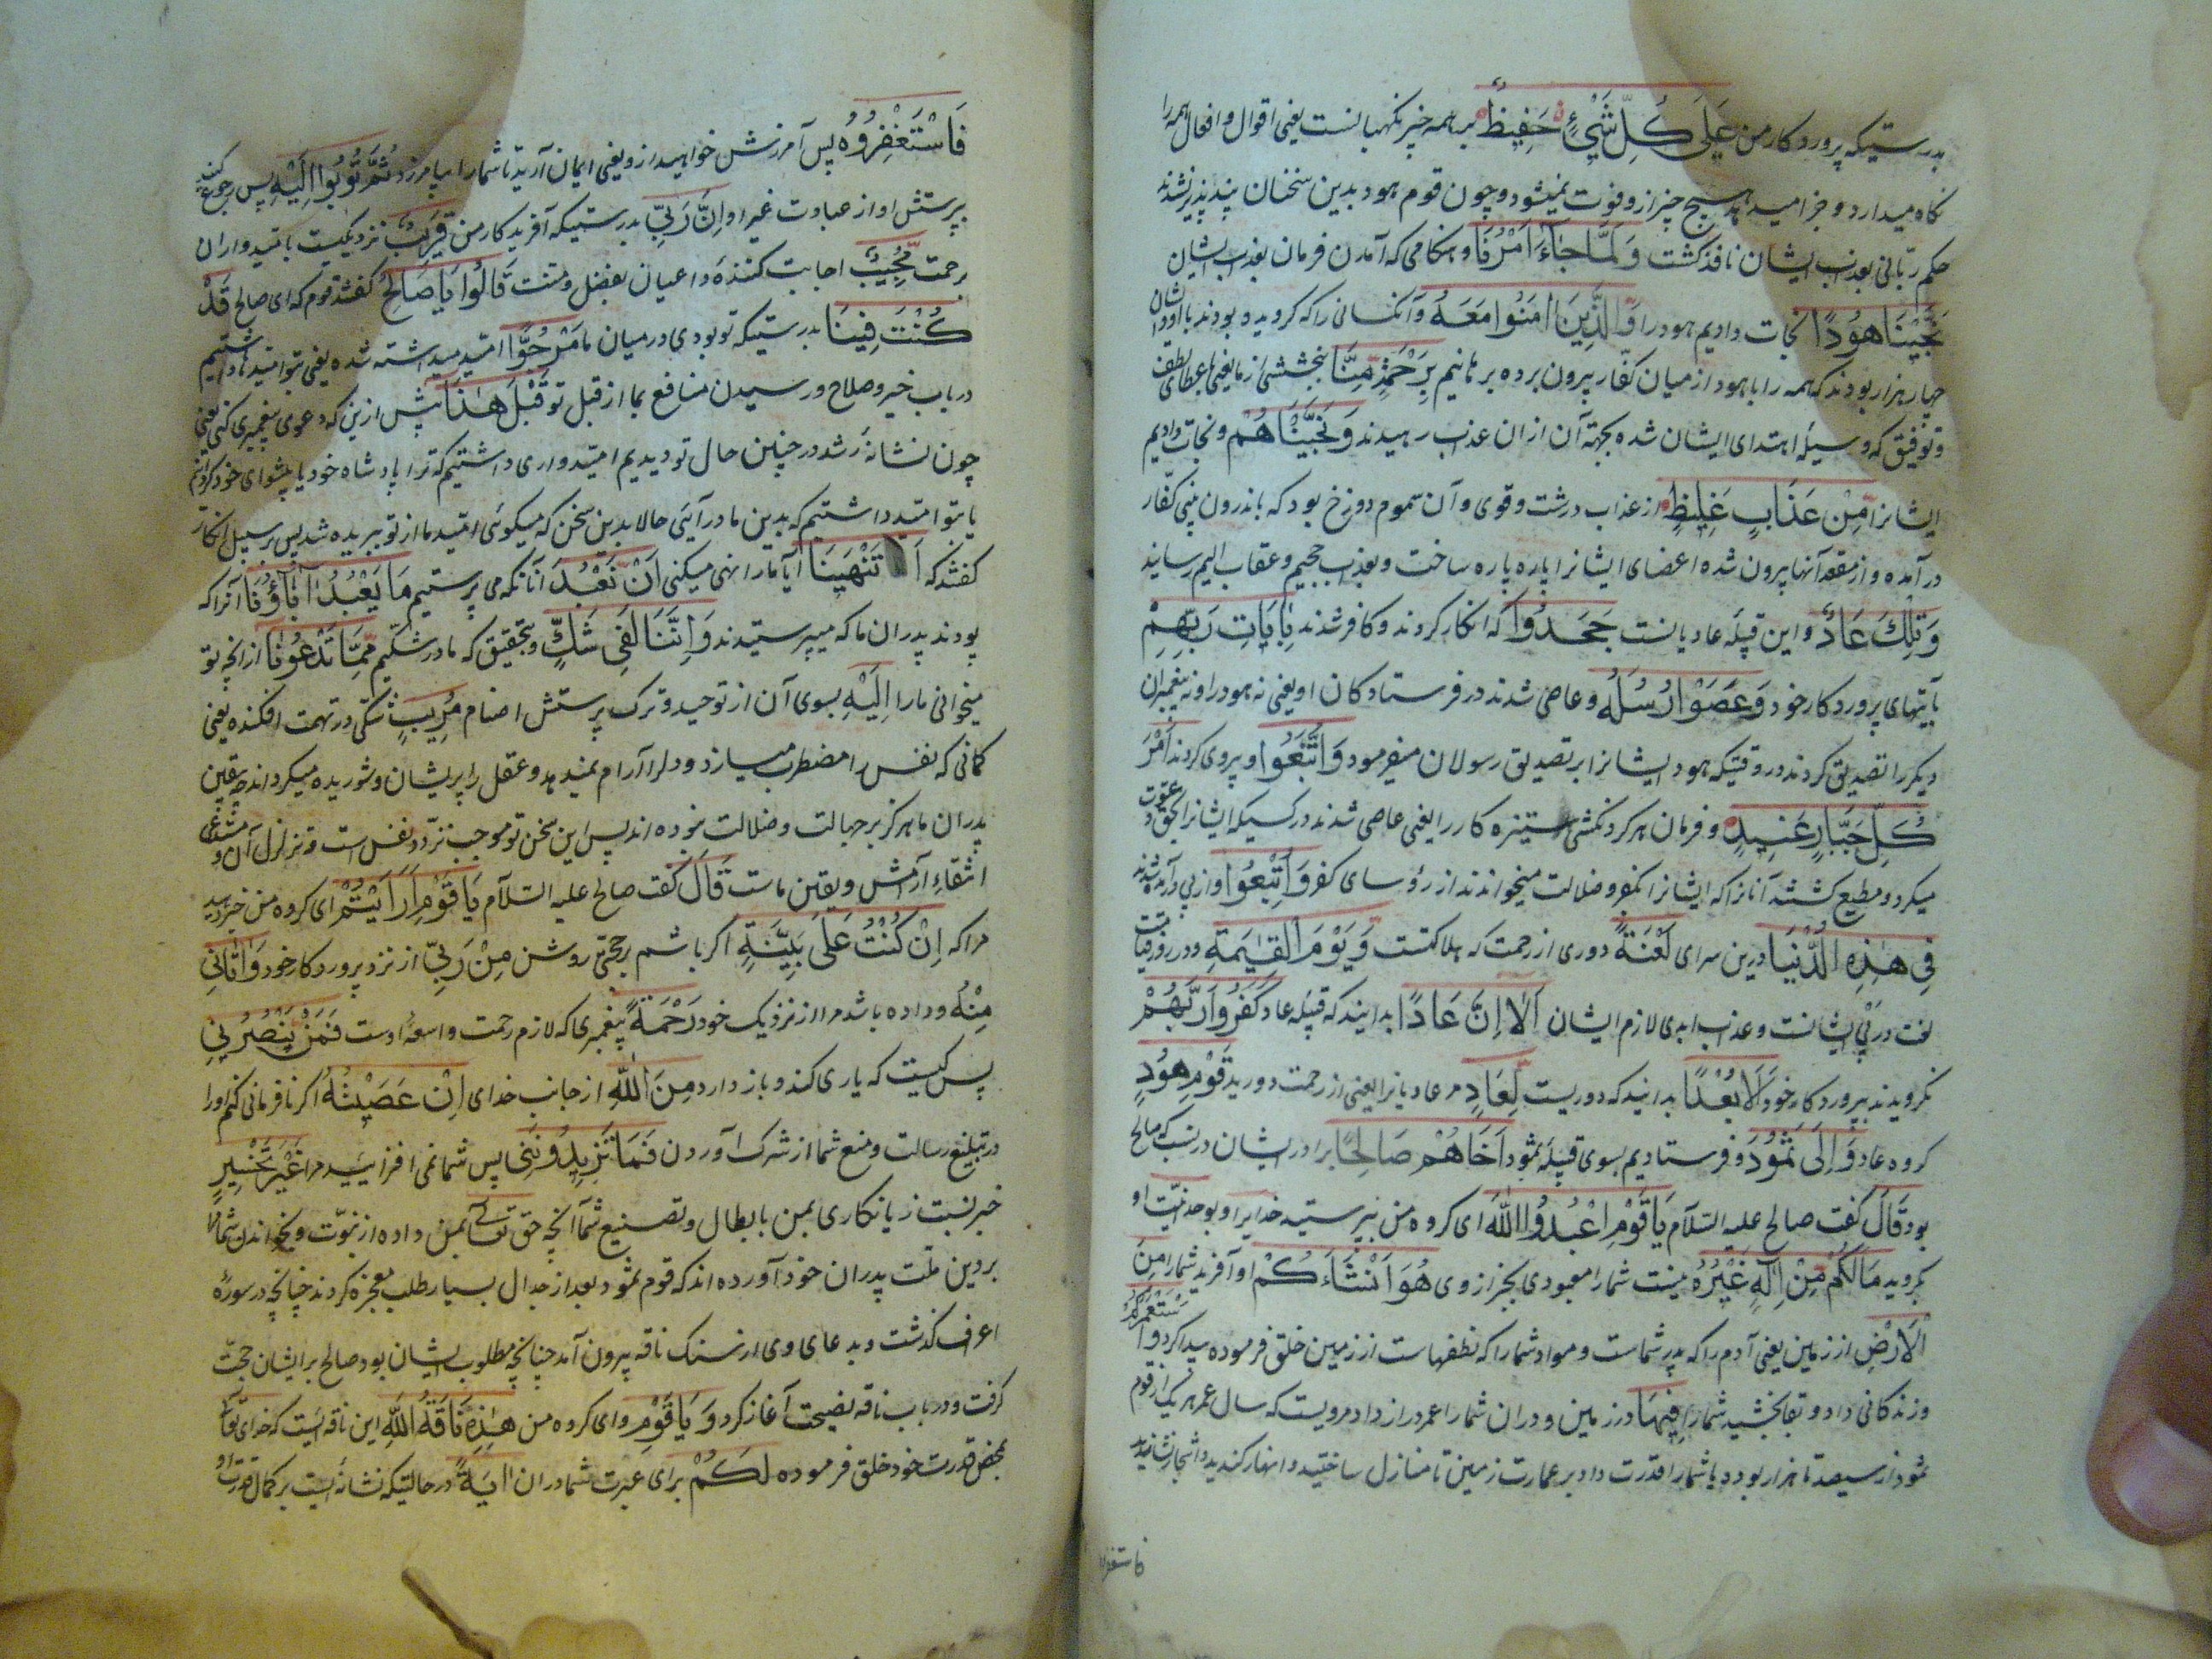 بدرستیکه پروردکار من عَلَى كُلِّ شَيْءٍ حَفِيظٌ بر همه چیز نکهبانست یعنی اقوال و افعال همه را
نکاه میدارد و جزا میدهد هیچ چیز ازو فوت نمیشود و چون قوم هود بدین سخنان پند پذیر نشدند
حکم ربّانی بعذاب ایشان نافذ کشت وَلَمَّا جَاءَ أَمْرُنَا و هنکامی که آمد فرمان بعذاب ایشان
نَجَّيْنَا هُودًا نجات دادیم هود را وَالَّذِينَ آمَنُوا مَعَهُ و آنکسانی را که کرویده بودند با او و ایشان
چهار هزار بودند که همه را با هود از میان کفّار بیرون برده برهانیم بِرَحْمَةٍ مِنَّا ببخششی از ما یعنی باعطای لطف
و توفیق که وسیلهٔ اهتدای ایشان شده بجهة آن ازان عذاب رهیدند وَنَجَّيْنَاهُمْ و نجات دادیم
ایشانرا مِنْ عَذَابٍ غَلِيظٍ از عذاب درشت و قوی و آن سموم دوزخ بود که باندرون بینی کفّار
در آمده و از مقعد آنها بیرون شده اعضای ایشانرا پاره پاره ساخت و بعذاب جحیم و عقاب الیم رسانید
وَتِلْكَ عَادٌ و این قبیلهٔ عادیانست جَحَدُوا که انکار کردند و کافر شدند بِآيَاتِ رَبِّهِمْ
بآیتهای پروردکار خود وَعَصَوْا رُسُلَهُ و عاصی شدند در فرستادکان او یعنی نه هود را و نه پیغمبران
دیکر را تصدیق کردند در وقتیکه هود ایشانرا بر تصدیق رسولان میفرمود وَاتَّبَعُوا و پیروی کردند أَمْرَ
كُلِّ جَبَّارٍ عَنِيدٍ و فرمان هر کردنکشی ستیزه کار را یعنی عاصی شدند در کسیکه ایشانرا بحق دعوت
میکرد و مطیع کشتند آنانرا که ایشانرا بکفر و ضلالت میخواندند از رؤسای کفر وَأُتْبِعُوا و از پی در آمده شدند
فِي هَذِهِ الدُّنْيَا درین سرای لَعْنَةً دوری از رحمت که هلاکتست وَيَوْمَ الْقِيَمَةِ و در روز قیامت
لعنت در پی ایشانست و عذاب ابدی لازم ایشان أَلَا إِنَّ عَادًا بدانید که قبیلهٔ عاد كَفَرُوا رَبَّهُمْ
نکرویدند بپروردکار خود أَلَا بُعْدًا بدانید که دوریست لِعَادٍ مر عادیانرا یعنی از رحمت دورید قَوْمِ هُودٍ
کروه عاد وَإِلَى ثَمُودَ و فرستادیم بسوی قبیلهٔ ثمود أَخَاهُمْ صَالِحًا برادر ایشان در نسب که صالح
بود قَالَ کفت صالح علیه السّلام يَا قَوْمِ اعْبُدُوا اللَّهَ ای کروه من بپرستید خدایرا و بوحدانیّت او
بکروید مَا لَكُمْ مِنْ إِلَهٍ غَيْرُهُ نیست شما را معبودی بجز از وی هُوَ أَنْشَأَكُمْ او آفرید شما را مِنَ
الْأَرْضِ از زمین یعنی آدم را که پدر شماست و مواد شما را که نطفهاست از زمین خلق فرموده پیدا کرد وَاسْتَعْمَرَكُمْ
و زندکانی داد و بقا بخشید شما را فِيهَا در زمین و دران شما را عمر دراز داد مرویست که سال عمر هر یک از قوم
ثمود از سیصد تا هزار بود و یا شما را قدرت داد بر عمارت زمین تا منازل ساختید و انهار کندید و اشجار نشاندید
فاستغفروه
فَاسْتَغْفِرُوهُ پس آمرزش خواهید ازو یعنی ایمان آرید تا شما را بیامرزد ثُمَّ تُوبُوا إِلَيْهِ پس رجوع کنید
بپرستش او از عبادت غیر او إِنَّ رَبِّي بدرستیکه آفریدکار من قَرِيبٌ نزدیکست بامّیدواران
رحمت مُجِيبٌ اجابت کنندهٔ داعیان بفضل و منّت قَالُوا يَا صَالِحُ کفتند قوم که ای صالح قَدْ
كُنْتَ فِينَا بدرستیکه تو بودی در میان ما مَرْجُوًّا امّید میداشته شده یعنی بتو امّیدها داشتیم
در باب خیر و صلاح و رسیدن منافع بما از قبل تو قَبْلَ هَذَا پیش ازین که دعوی پیغمبری کنی یعنی
چون نشانهٔ رشد در جبین حال تو دیدیم امّیدواری داشتیم که ترا پادشاه خود یا پیشوای خود کردانیم
یا بتو امّید داشتیم که بدین ما در آئی حالا بدین سخن که میکوئی امّید ما از تو بریده شد پس بر سبیل انکار
کفتند که أَتَنْهَينَا آیا ما را نهی میکنی أَنْ نَعْبُدَ آنانکه می پرستیم مَا يَعْبُدُ آبَاؤُنَا آنرا که
بودند پدران ما که میپرستیدند وَإِنَّنَا لَفِي شَكٍّ و بتحقیق که ما در شکّیم مِمَّا تَدْعُونَا از آنچه تو
میخوانی ما را إِلَيْهِ بسوی آن از توحید و ترک پرستش اصنام مُرِيبٍ شکّی در تهمت افکنده یعنی
کمانی که نفس را مضطرب میسازد و دلرا آرام نمیدهد و عقل را پریشان و شوریده میکرداند چه یقین
پدران ما هرکز بر جهالت و ضلالت نبوده اند پس این سخن تو موجب تردّد نفس است و تزلزل آن و مستدعی
انتفاء آرامش و یقین ماست قَالَ کفت صالح علیه السّلام يَا قَوْمِ أَرَأَيْتُمْ ای کروه من خبر دهید
مرا که إِنْ كُنْتُ عَلَى بَيِّنَةٍ اکر باشم بر حجّتی روشن مِنْ رَبِّي از نزد پروردکار خود وَآتَانِي
مِنْهُ و داده باشد مرا از نزدیک خود رَحْمَةً پیغمبری که لازم رحمت واسعهٔ اوست فَمَنْ يَنْصُرُنِي
پس کیست که یاری کند و باز دارد مِنَ اللَّهِ از جانب خدای إِنْ عَصَيْتُهُ اکر نافرمانی کنم او را
در تبلیغ رسالت و منع شما از شرک آوردن فَمَا تَزِيدُونَنِي پس شما نمی افزایید مرا غَيْرَ تَخْسِيرٍ
جز نسبت زیانکاری بمن بابطال و تضییع شما آنچه حق تعالی بمن داده از نبوّت و خواندن شما را
بر دین ملّت پدران خود آورده اند که قوم ثمود بعد از جدال بسیار طلب معجزه کردند چنانچه در سورهٔ
اعراف کذشت و بدعای وی از سنک ناقه بیرون آمد چنانچه مطلوب ایشان بود صالح بر ایشان حجّت
کرفت و در باب ناقه نصیحت آغاز کرد وَيَا قَوْمِ و ای کروه من هَذِهِ نَاقَةُ اللَّهِ این ناقه ایست که خدای تعالی
بمحض قدرت خود خلق فرموده لَكُمْ برای عبرت شما دران آيَةً در حالتیکه نشانه ایست بر کمال قدرت او